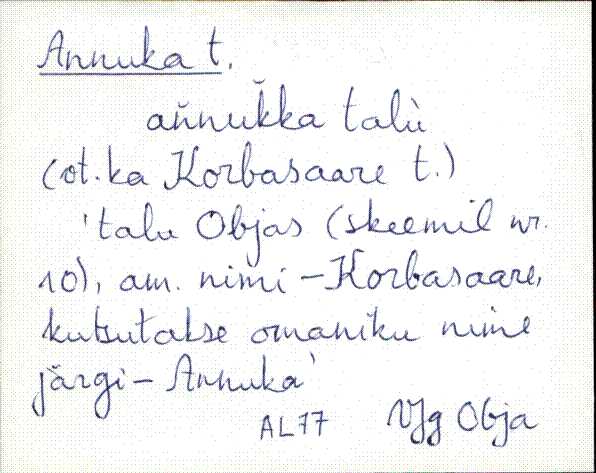 Annuka t.
ǎnnuǩka talù
(ot. ka Korbasaare t.)
'talu Objas (skeemil nr.
10), am. nimi - Korbasaare,
kutsutakse omaniku nime
järgi - Annuka'
AL77 VJg Obja